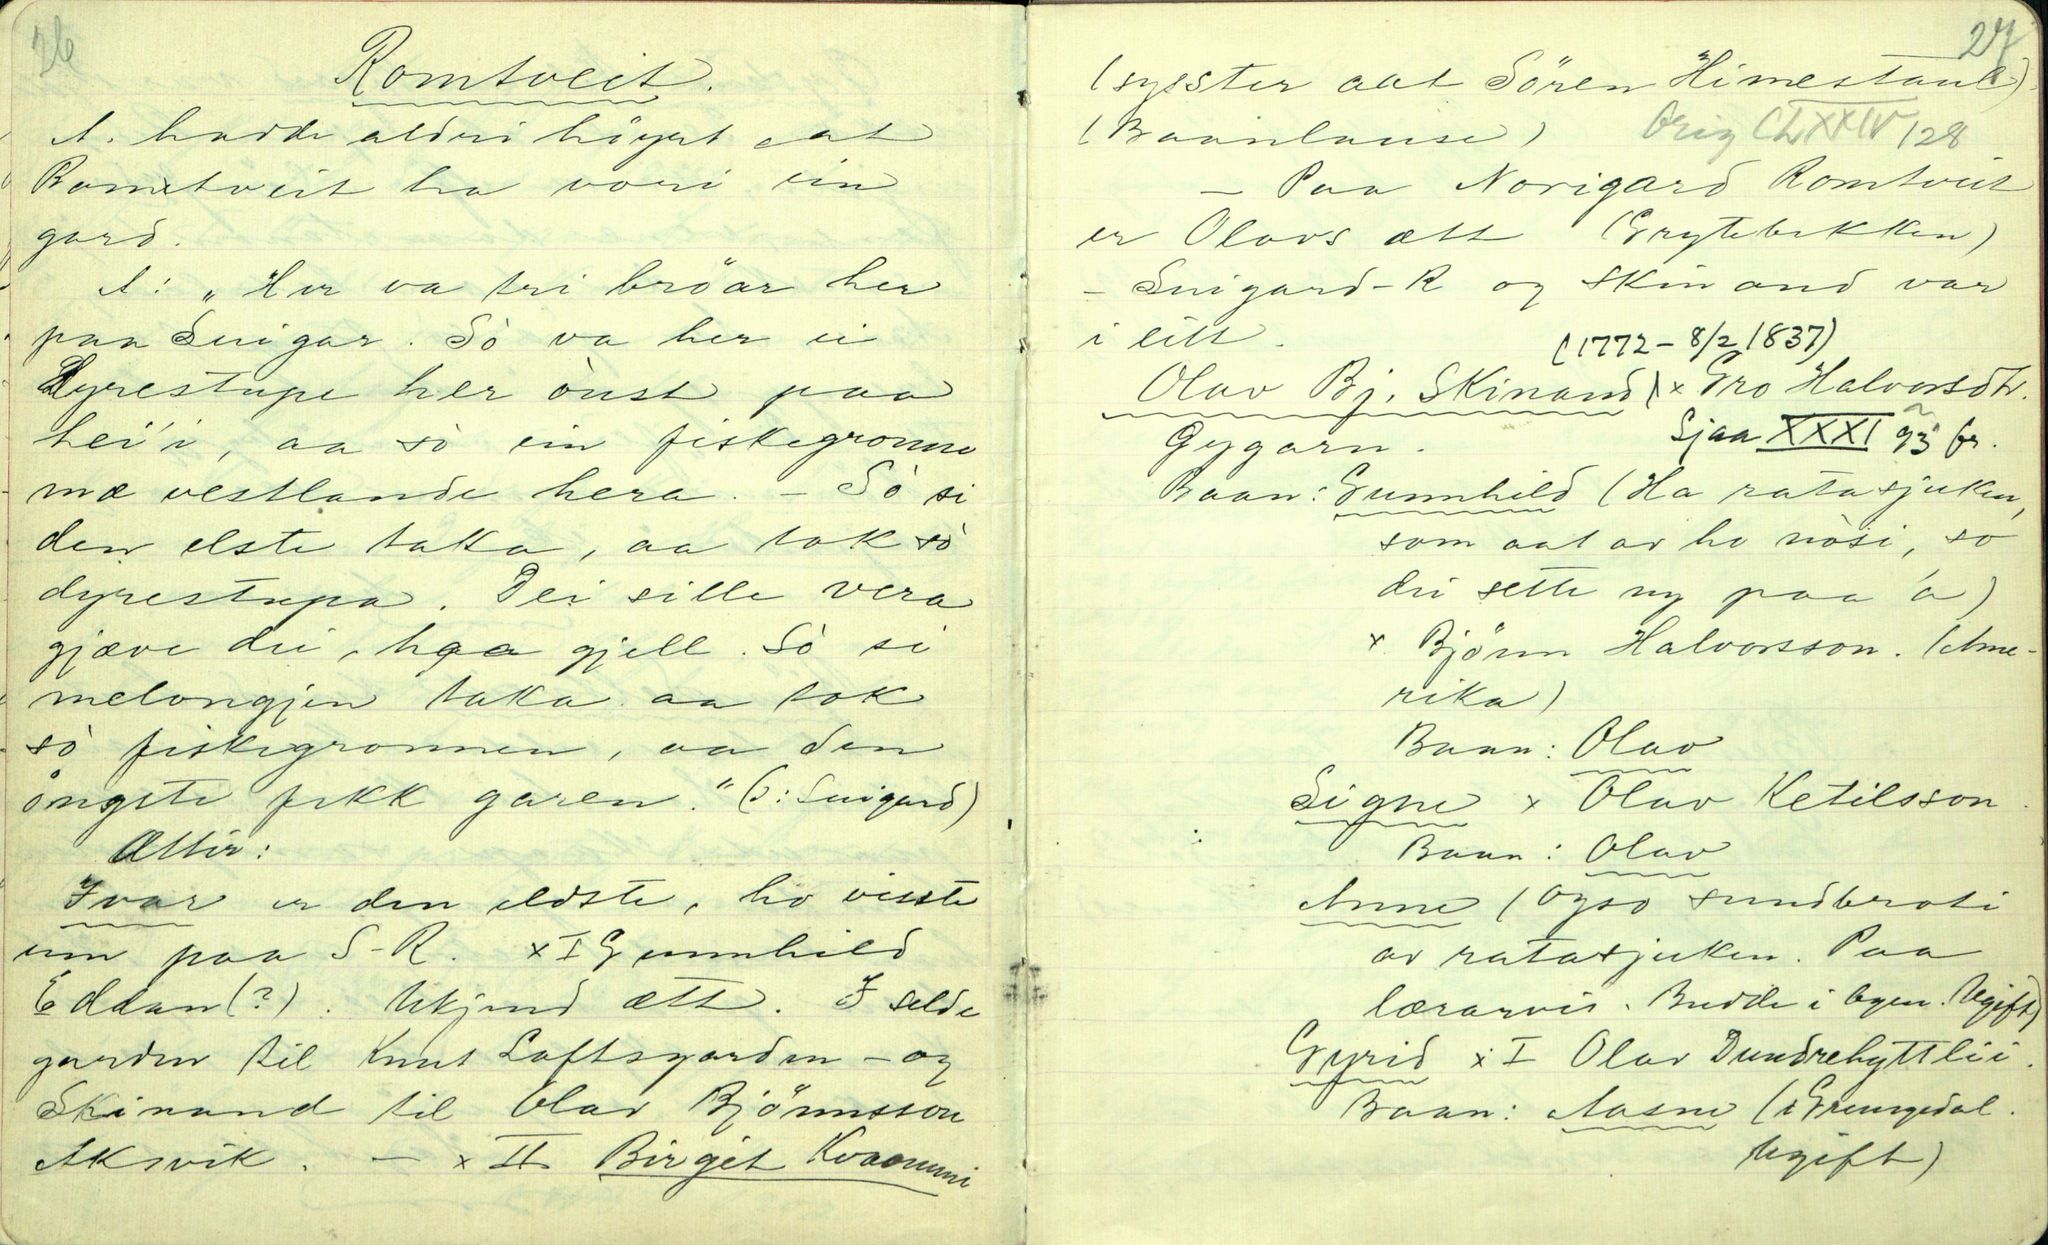 26
Romtveit.
A. hadde aldri höyrt at
Romtveit ha vori ein
gard.
A: „Her va tri bröar her
paa Suigar. Sò va her ei
Dyrestupe her òust paa
hei'i, aa sò ein fiskegronne
mæ vestlande hera. – Sò si
den elste taka, aa tok sò
dyrestupa. Dei sille vera
gjæve dei, haa gjell. Sò si
melongjen taka aa tok
sò fiskegronnen, aa den
òngste fekk garen." (ɔ: Suigard)
Ættir:
Ivar er den eldste, ho visste
um paa S-R. × I Gunnhild
Eddan (?). Ukjend ætt. I selde
garden til Knut Loftsgarden – og
Skinand til Olav Bjönnsson
Aksvik. – × II Birgit Kvammi
27
(syster aat Sören Himestaul)
(Baanlause) Orig CLXXIV 128
– Paa Norigard Romtveit
er Olavs ætt (Grytebekken)
– Suigard-R og Skinand var
i eitt.
(1772 – 8/2 1837)
Olav Bj. Skinand × Gro Halvorsdtr.
Gygarn. Sjaa XXXI 93 fr.
Baan: Gunnhild (Ha ratasjuken,
som aat av ho nòsi, so
dei sette ny paa 'a)
× Bjönn Halvorsson. (Ame-
rika)
Baan: Olav
Signe × Olav Ketilsson.
Baan: Olav
Anne (ogso sundbroti
av ratasjuken. Paa
lærarvis. Budde i byen. Ugift)
Gyrid × I Olav Dundrehyttlii.
Baan: Aasne (i Grungedal.
Ugift)